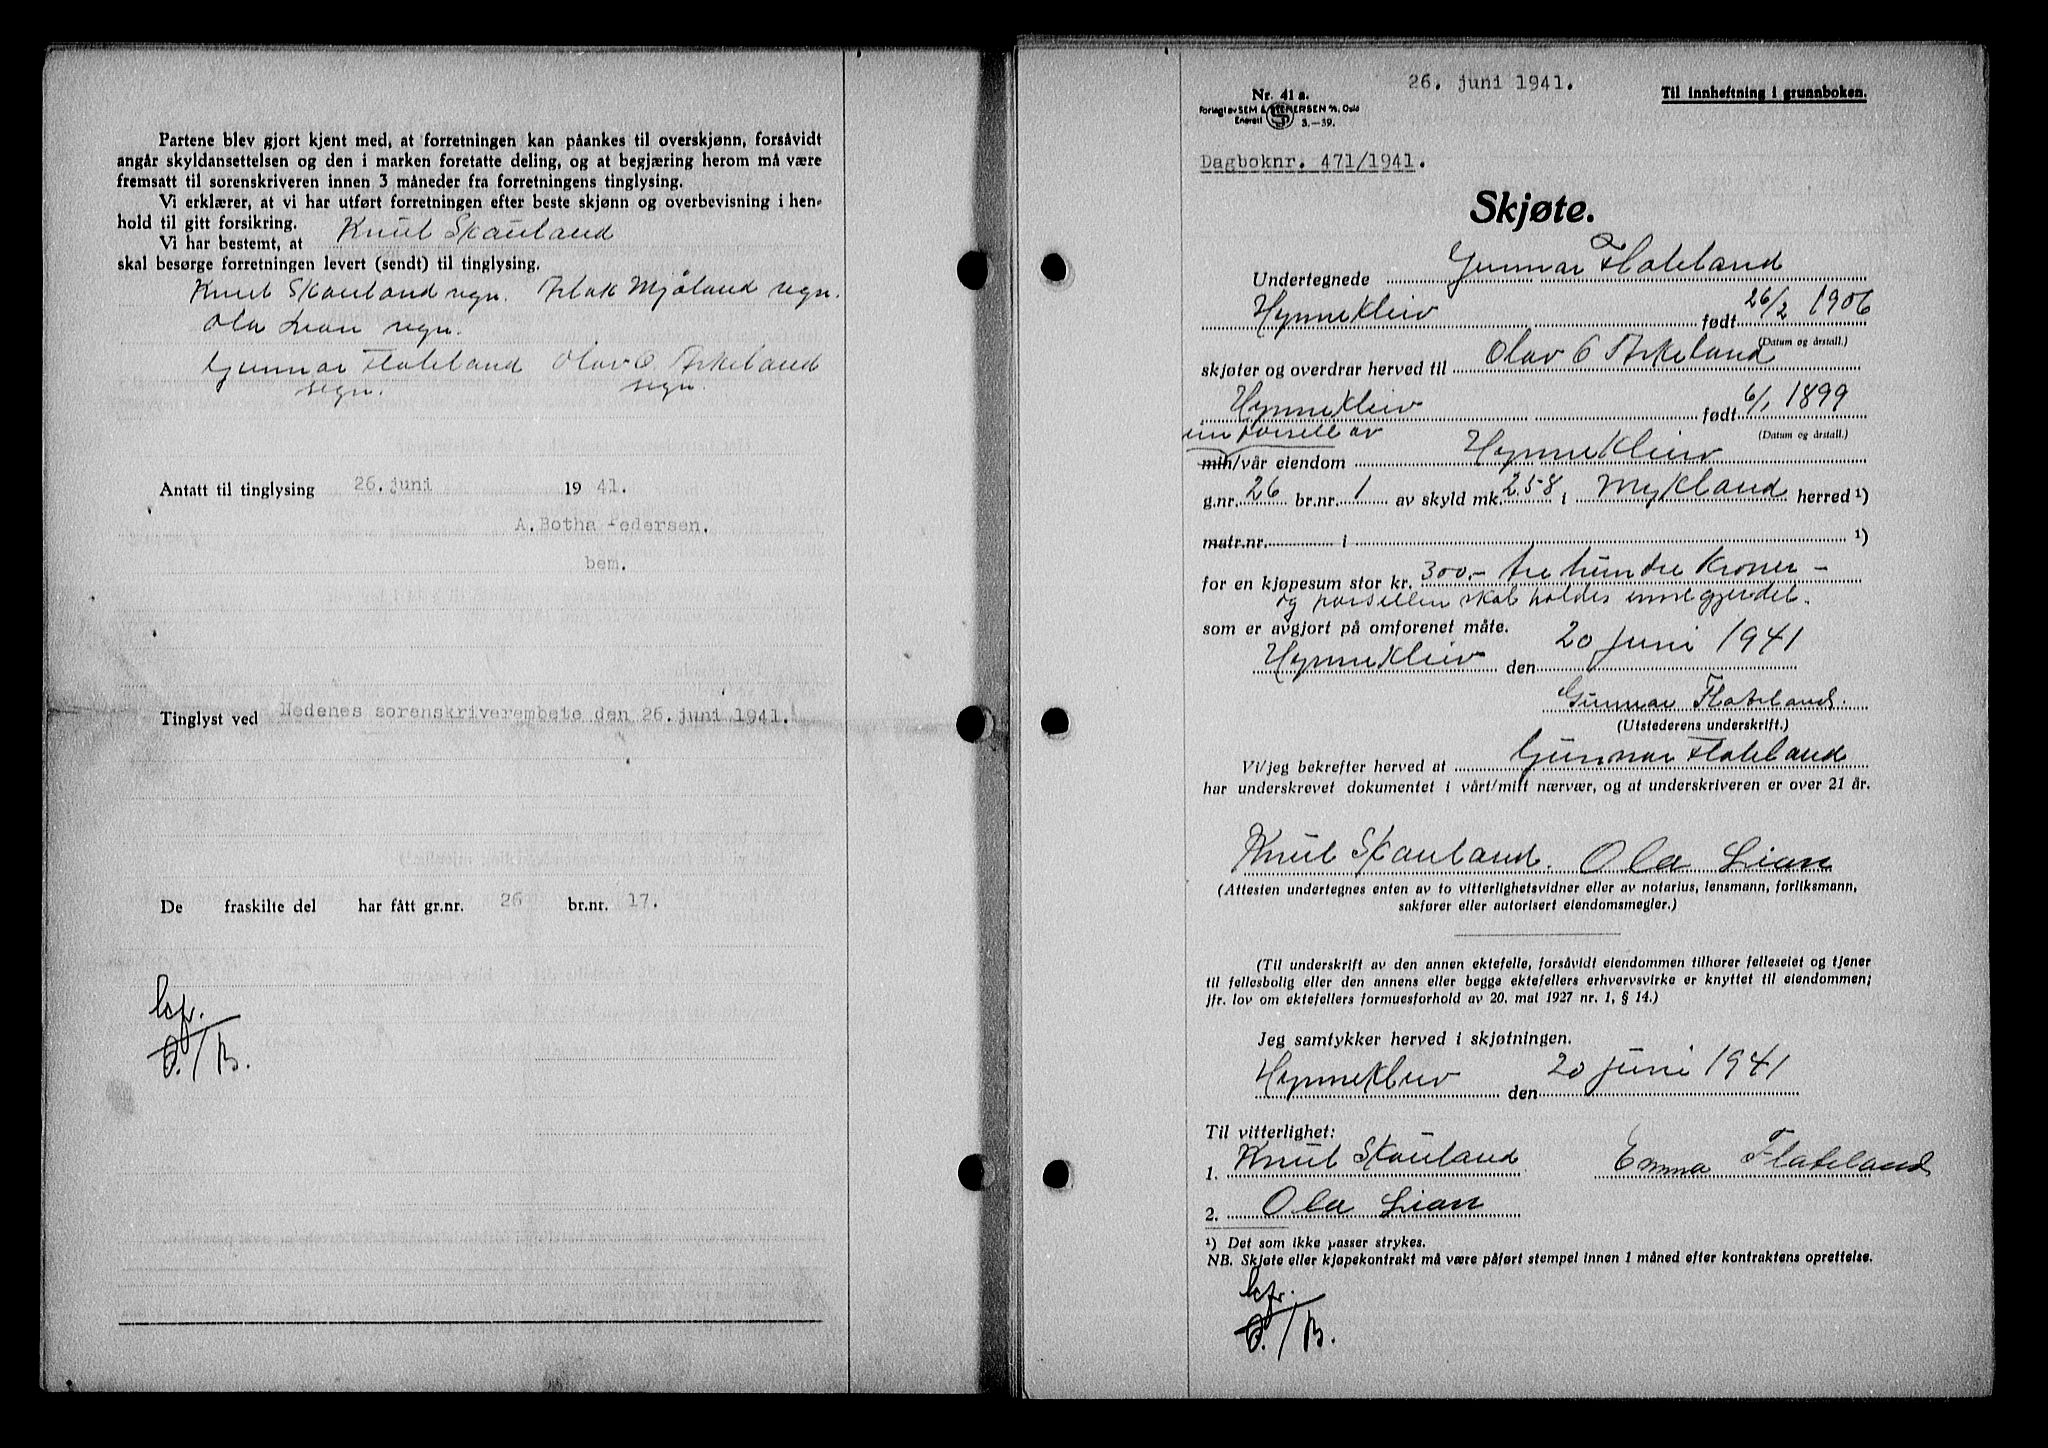 Partene blev gjort kjent med, at forretningen kan påankes til overskjønn, forsåvidt
angår skyldansettelsen og den i marken foretatte deling, og at begjæring herom må være
fremsatt til sorenskriveren innen 3 måneder fra forretningens tinglysing.
Vi erklærer, at vi har utført forretningen efter beste skjønn og overbevisning i hen-
hold til gitt forsikring.
Vi har bestemt, at Knut Skauland
skal besørge forretningen levert (sendt) til tinglysing.
Knut Skauland sign. Aslak Mjåland sign.
Ola Lian sign.
Gunnar Flateland Olav O Askeland
sign. sign.
Antatt til tinglysing 26. juni 1941.
A. Botha Pedersen.
bem.
Tinglyst ved Nedenes sorenskriverembete den 26. juni 1941.
De fraskilte del har fått gr.nr. 26 br.nr. 17.
kfr.
O./B.
26. juni 1941.
Nr. 41 a.
Forlagt av SEM & STENERSEN A/S, Oslo
Enerett S 3.—39.
Til innheftning i grunnboken.
Dagboknr. 471/1941.
Skjøte.
Undertegnede Gunnar Flateland
Hynnekleiv født 26/2 1906
(Datum og årstall.)
skjøter og overdrar herved til Olav O Askeland
Hynnekleiv født 6/1 1899
(Datum og årstall.)
en parsell av
min/vår eiendom Hynnekleiv
g.nr. 26 br.nr. 1 av skyld mk. 2.58 i Mykland herred ¹)
matr.nr. i ¹)
for en kjøpesum stor kr. 300.- tre hundre kroner -
og parsellen skal holdes innegjerdet.
som er avgjort på omforenet måte.
Hynnekleiv den 20 juni 1941
Gunnar Flateland.
(Utstederens underskrift.)
Vi/jeg bekrefter herved at Gunnar Flateland
har underskrevet dokumentet i vårt/mitt nærvær, og at underskriveren er over 21 år.
Knut Skauland. Ola Lian
(Attesten undertegnes enten av to vitterlighetsvidner eller av notarius, lensmann, forliksmann,
sakfører eller autorisert eiendomsmegler.)
(Til underskrift av den annen ektefelle, forsåvidt eiendommen tilhører felleseiet og tjener
til fellesbolig eller den annens eller begge ektefellers erhvervsvirke er knyttet til eiendommen;
jfr. lov om ektefellers formuesforhold av 20. mai 1927 nr. 1, § 14.)
Jeg samtykker herved i skjøtningen.
Hynnekleiv den 20 juni 1941
Til vitterlighet:
1. Knut Skauland Emma Flateland
2. Ola Lian
¹) Det som ikke passer strykes.
NB. Skjøte eller kjøpekontrakt må være påført stempel innen 1 måned efter kontraktens oprettelse.
kfr.
O./B.